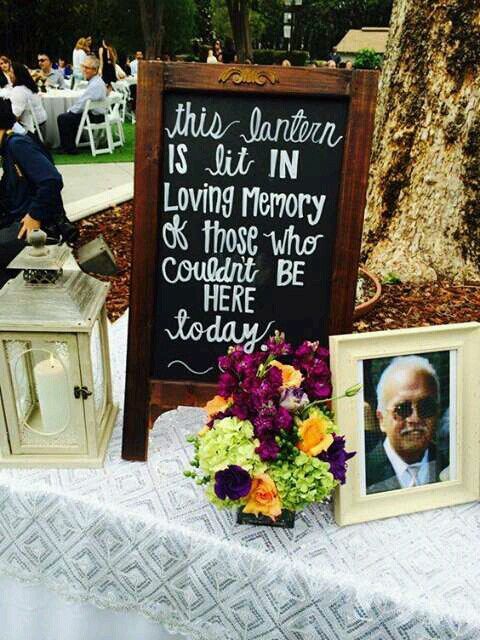 this lantern
IS lit IN
Loving Memory
of those who
Couldn't BE
HERE
today